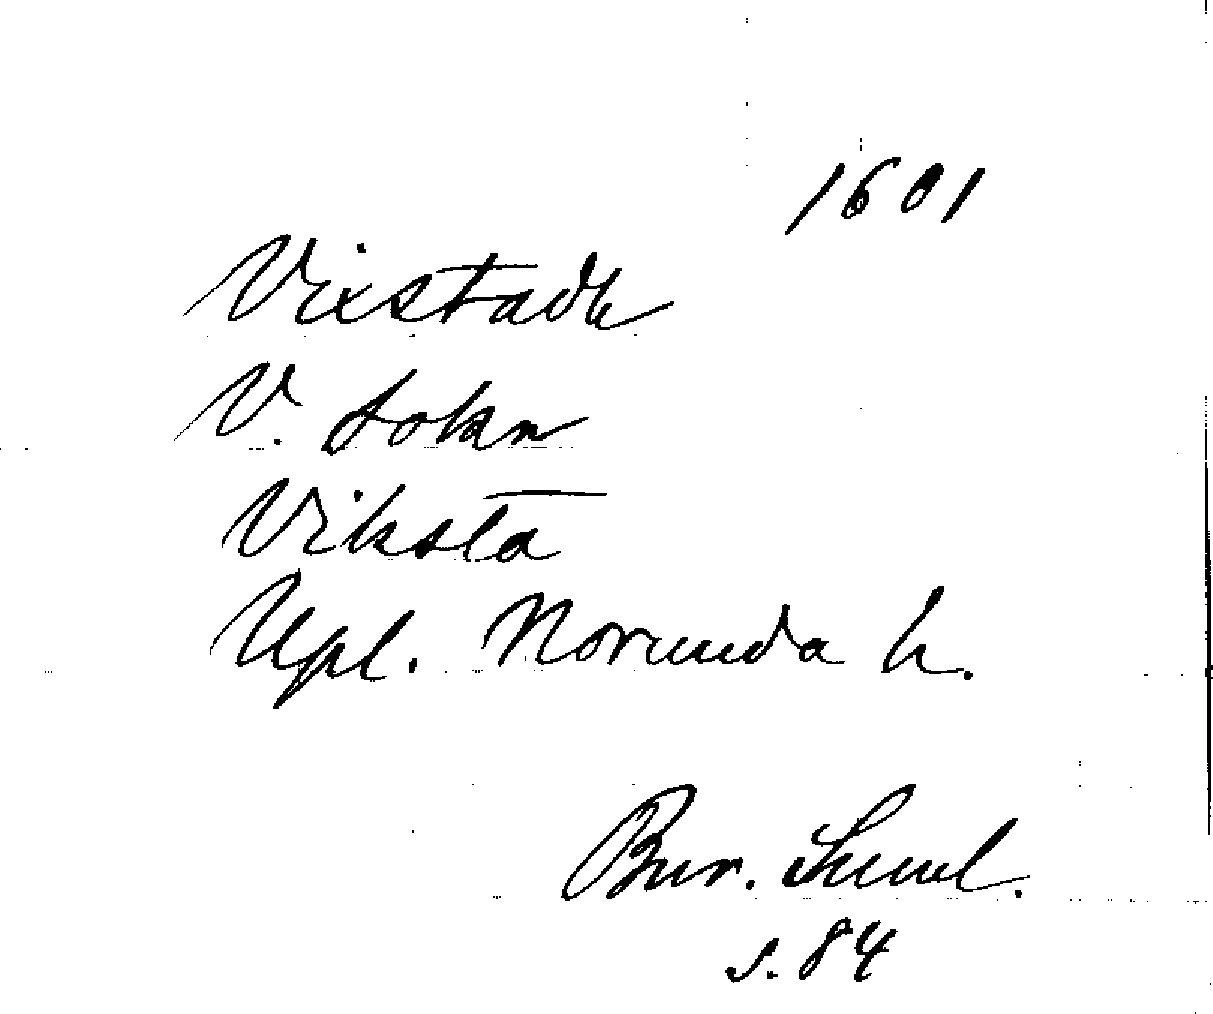 1601
Vixstadh
V. sokn
Viksta
Upl. Norunda h.
Bur. Suml.
s. 84